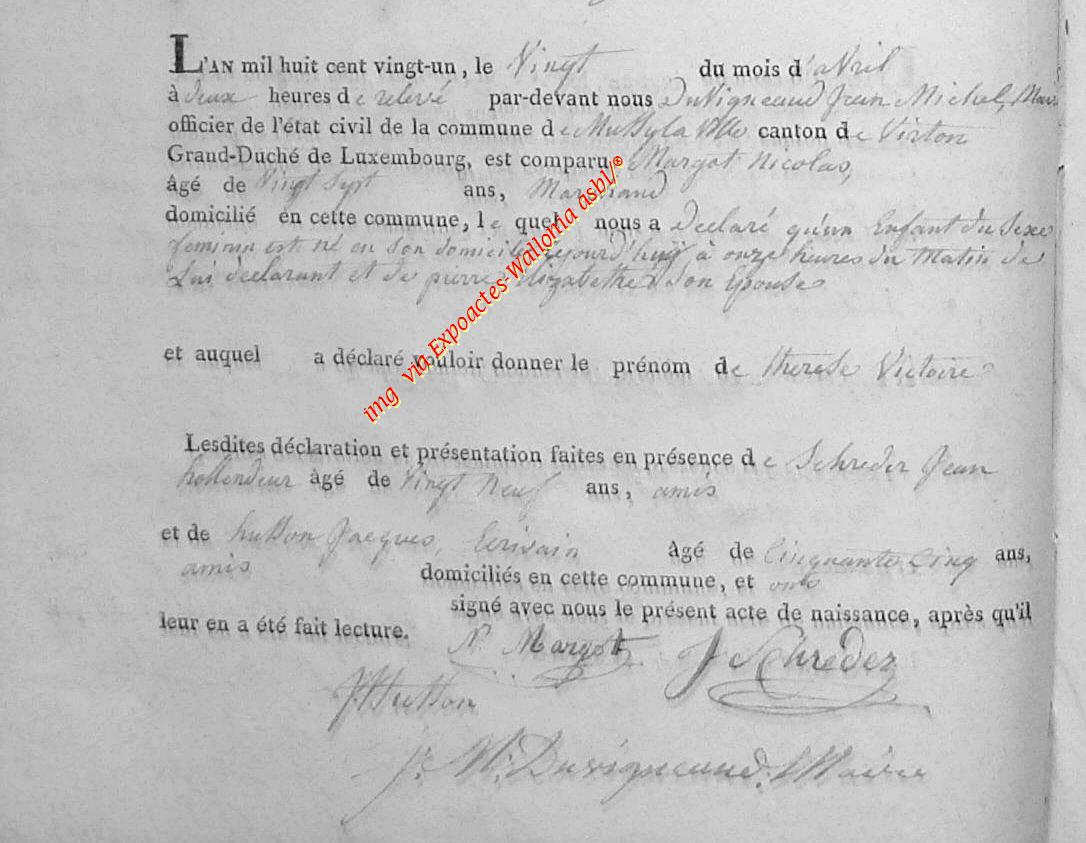 L'AN mil huit cent vingt-un, le Vingt du mois d'aVril
à deux heures de relevé par-devant nous DuVigneaud Jean Michel, Maire
officier de l'état civil de la commune de Mussy la Ville canton de Virton
Grand-Duché de Luxembourg, est comparu Margot Nicolas,
âgé de Vingt Sept ans, Marchand
domicilié en cette commune, le quel nous a Declaré qu'un Enfant du Sexe
feminin est né en Son domicile aujourd'huy à onze heures du Matin de
Lui declarant et de pierre Elizabethe Son Epouse
et auquel a déclaré vouloir donner le prénom de therese Victoire
Lesdites déclaration et présentation faites en présence de Schreder Jean
âgé de Vingt Neuf ans, amis
et de husson Jacques, Ecrivain âgé de Cinquante Cinq ans,
amis domiciliés en cette commune, et ont
signé avec nous le présent acte de naissance, après qu'il
leur en a été fait lecture.
N. Margot J Schreder
J Husson
J. M. Duvigneaud. Maire
img via Expoactes-Wallonia asbl/®